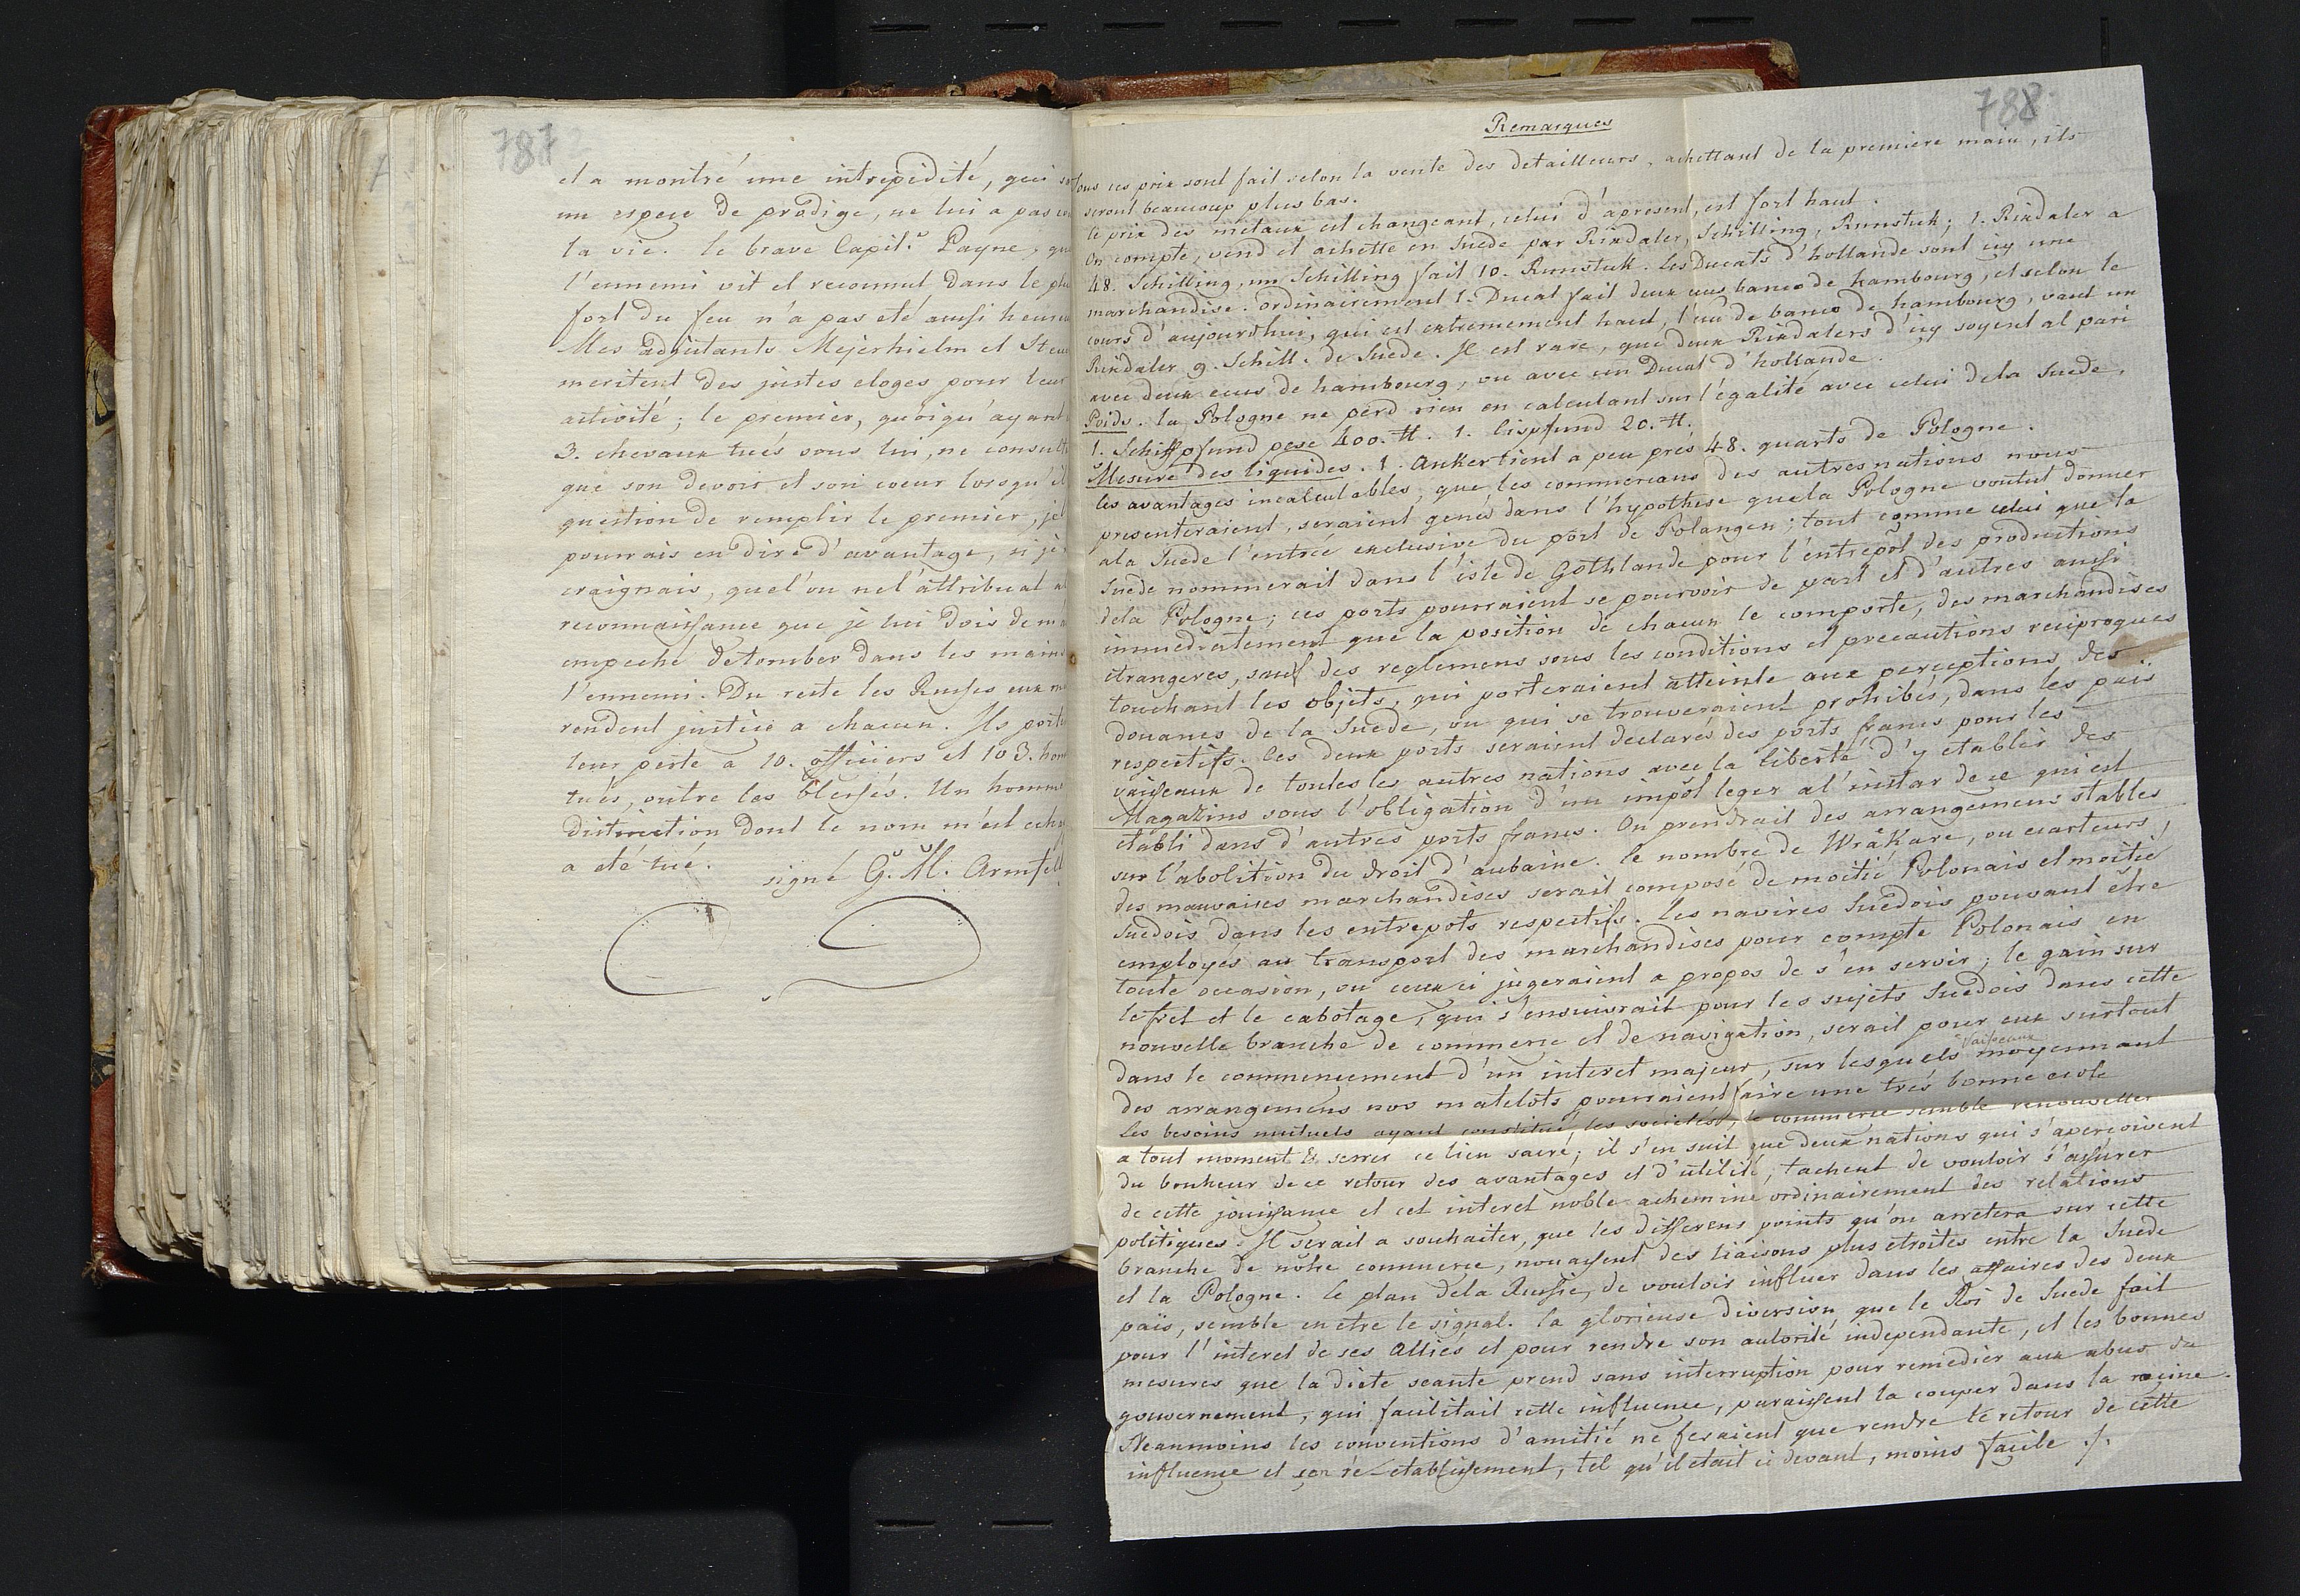 787
et a montré une intrepidité, qui
un espece de prodige, ne lui a pas
la vie. le brave Capit:ⁿ Payne,
l'ennemi vit et reconnut dans le
fort du feu n'a pas eté aussi
Mes adjutants Mejerhielm et
meritent des justes eloges pour leur
activité; le premier, quoiqu'ayant
3. chevaux tués sous lui, ne
que son devoir et son coeur lorsqu'il
question de remplir le premier, je
pourrais en dire d'avantage, si je
craignais, que l'on ne l'attribuat
reconnaissance que je lui dois de
empeché de tomber dans les mains
l'ennemi. Du reste les Russes eux
rendent justice a chacun. Ils
leur perte a 10. officiers et 103.
tués, outre les blessés. Un homme
distinction dont le nom m'est
a eté tué.
signé G. M. Armfelt
788
Remarques
Tous ces prix sont fait selon la vente des detailleurs, achettant de la premiere main, ils
seront beaucoup plus bas.
le prix des metaux est changeant, celui d'apresent, est fort haut.
On compte, vend et achette en Suede par Rixdaler, Schilling, Runstuk; 1. Rixdaler a
48. Schilling, un Schilling fait 10. Runstuk. Les Ducats d'hollande sont icy une
marchandise. ordinairement 1. Ducat fait deux ecus banco de hambourg, et selon le
cours d'aujourdhui, qui est extremement haut, l'ecu de banco de hambourg, vaut un
Rixdaler 9. Schill. de Suede. Il est rare, que deux Rixdalers d'icy soyent al pari
avec deux ecus de hambourg, ou avec un Ducat d'hollande.
Poids. la Pologne ne perd rien en calculant sur l'égalité avec celui dela Suede.
1. Schiffpfund pese 400. ℔. 1. Lispfund 20. ℔.
Mesure des liquides. 1. Anker tient a peu prés 48. quarts de Pologne.
les avantages incalculables, que les commercans des autres nations nous
presenteraient, seraient genés dans l'hypothese que la Pologne voulut donner
ala Suede l'entrée exclusive du port de Polangen; tout comme celui que la
Suede nommerait dans l'isle de Gothlande pour l'entrepôt des productions
dela Pologne; ces ports pourraient se pourvoir de part et d'autres aussi
immediatement que la position de chacun le comporte, des marchandises
etrangeres, sauf des reglemens sous les conditions et precautions reciproques
touchant les objets, qui porteraient atteinte aux perceptions des
douanes de la Suede, ou qui se trouveraient prohibés, dans les païs
respectifs. les deux ports seraient declarés des ports francs pour les
vaisseaux de toutes les autres nations avec la liberté d'y etablir des
Magazins sous l'obligation d'un impôt leger al'instar de ce qui est
etabli dans d'autres ports francs. On prendrait des arrangemens stables
sur l'abolition du droit d'aubaine. le nombre de Wråkare, ou ecarteurs,
des mauvaises marchandises serait composé de moitié Polonais et moitié
Suedois dans les entrepots respectifs. les navires Suedois pouvant être
employés au transport des marchandises pour compte Polonais en
toute occasion, ou ceux ci jugeraient a propos de s'en servir; le gain sur
le fret et le cabotage, qui s'ensuivrait pour les sujets Suedois dans cette
nouvelle branche de commerce et de navigation, serait pour eux surtout
dans le commencement d'un interet majeur, sur lesquels Vaisseaux moyennant
des arrangemens nos matelots pourraient faire une trés bonne ecole
Les besoins mutuels ayant constitué les societés, le commerce semble renouveller
a tout moment & serrer ce lien sacré; il s'en suit que deux nations qui s'apercoivent
du bonheur de ce retour des avantages et d'utilité, tachent de vouloir s'assurer
de cette jouissance et cet interet noble achemine ordinairement des relations
politiques. Il serait a souhaiter, que les differens points qu'on arretera sur cette
branche de nôtre commerce, nouassent des liaisons plus etroites entre la Suede
et la Pologne. le plan dela Russie, de vouloir influer dans les affaires des deux
païs, semble en etre le signal. la glorieuse diversion que le Roi de Suede fait
pour l'interet de ses Alliés et pour rendre son autorité independante, et les bonnes
mesures que la diete seante prend sans interruption pour remedier aux abus du
gouvernement, qui facilitait cette influence, paraissent la couper dans la racine.
Neanmoins les conventions d'amitié ne feraient que rendre le retour de cette
influence et son ré-etablissement, tel qu'il etait ci devant, moins facile ./.